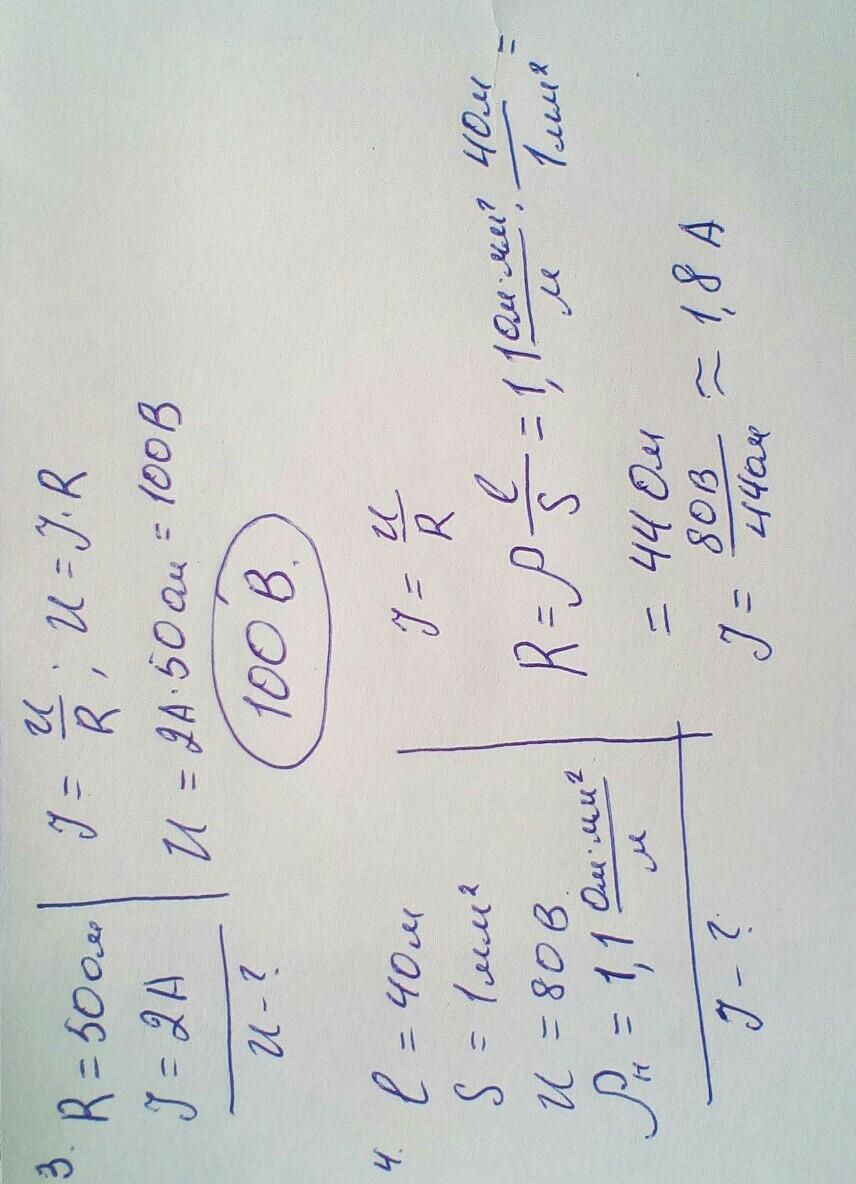 3. R = 50 Ом
I = 2А
U - ?
I = U/R; U = I·R
U = 2А·50 Ом = 100В
100 В.
4. l = 40м
S = 1мм²
U = 80В
ρн = 1,1 Ом·мм²/м
I - ?
I = U/R
R = ρ l/S = 1,1 Ом·мм²/м · 40м/1мм² =
= 44 Ом
I = 80В/44Ом ≈ 1,8 А